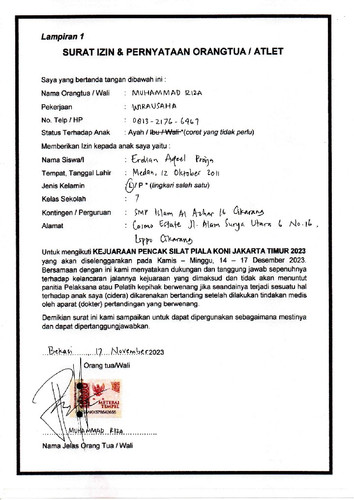 Lampiran 1
SURAT IZIN & PERNYATAAN ORANGTUA / ATLET
Saya yang bertanda tangan dibawah ini :
Nama Orangtua / Wali : MUHAMMAD RIZA
Pekerjaan : WIRAUSAHA
No. Telp / HP : 0813-2176-6967
Status Terhadap Anak : Ayah / Ibu / Wali *(coret yang tidak perlu)
Memberikan Izin kepada anak saya yaitu :
Nama Siswa/i : Erdian Aqeel
Tempat, Tanggal Lahir : Medan, 12 Oktober 2011
Jenis Kelamin : L / P * (lingkari salah satu)
Kelas Sekolah : 7
Kontingen / Perguruan : SMP Islam Al Azhar 16 Cikarang
Alamat : Cosmo Estate Jl. Alam Surya Utara 6 No.16,
Lippo Cikarang
Untuk mengikuti KEJUARAAN PENCAK SILAT PIALA KONI JAKARTA TIMUR 2023
yang akan diselenggarakan pada Kamis – Minggu, 14 – 17 Desember 2023.
Bersamaan dengan ini kami menyatakan dukungan dan tanggung jawab sepenuhnya
terhadap kelancaran jalannya kejuaraan yang dimaksud dan tidak akan menuntut
panitia Pelaksana atau Pelatih kepihak berwenang jika seandainya terjadi sesuatu hal
terhadap anak saya (cidera) dikarenakan bertanding setelah dilakukan tindakan medis
oleh aparat (dokter) pertandingan yang berwenang.
Demikian surat ini kami sampaikan untuk dapat dipergunakan sebagaimana mestinya
dan dapat dipertanggungjawabkan.
Bekasi, 17 November 2023
Orang tua/Wali
METERAI
TEMPEL
MUHAMMAD RIZA
Nama Jelas Orang Tua / Wali